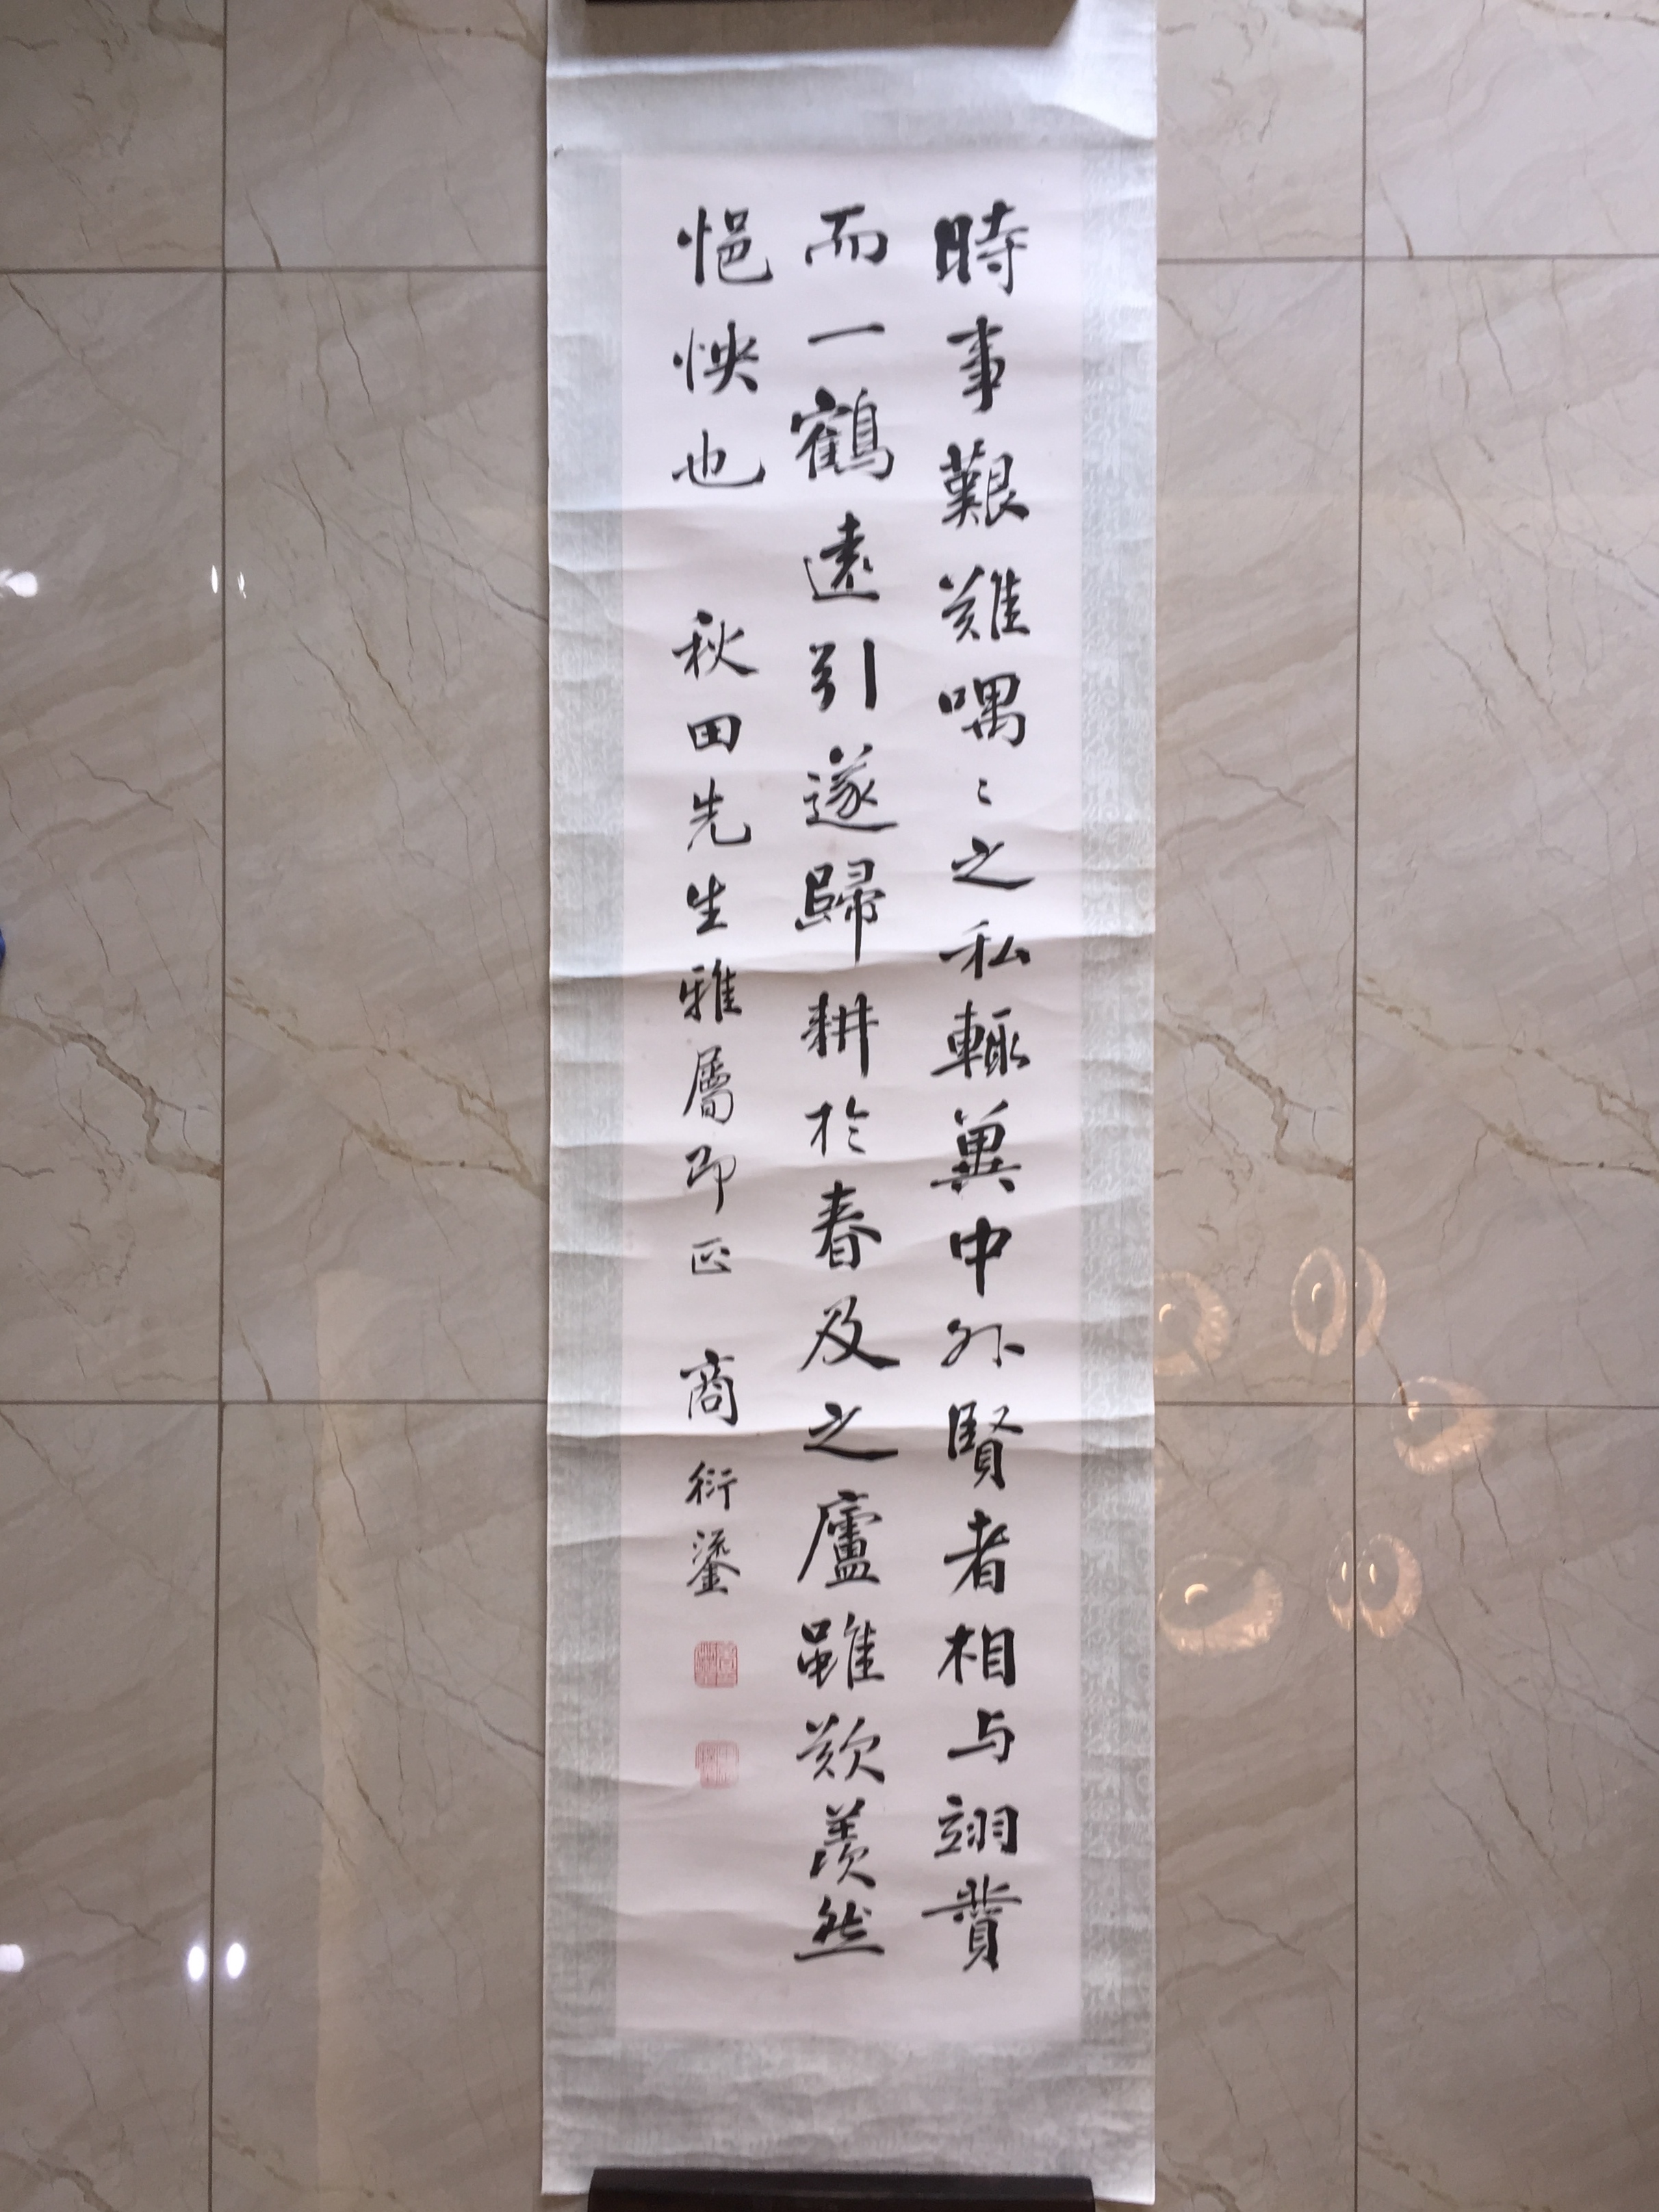 時事艱難喁々之私輒冀中外賢者相与翊賛
而一鶴遠引遂歸耕於春及之廬雖歎羨然
悒怏也 秋田先生雅屬即正 商衍鎏